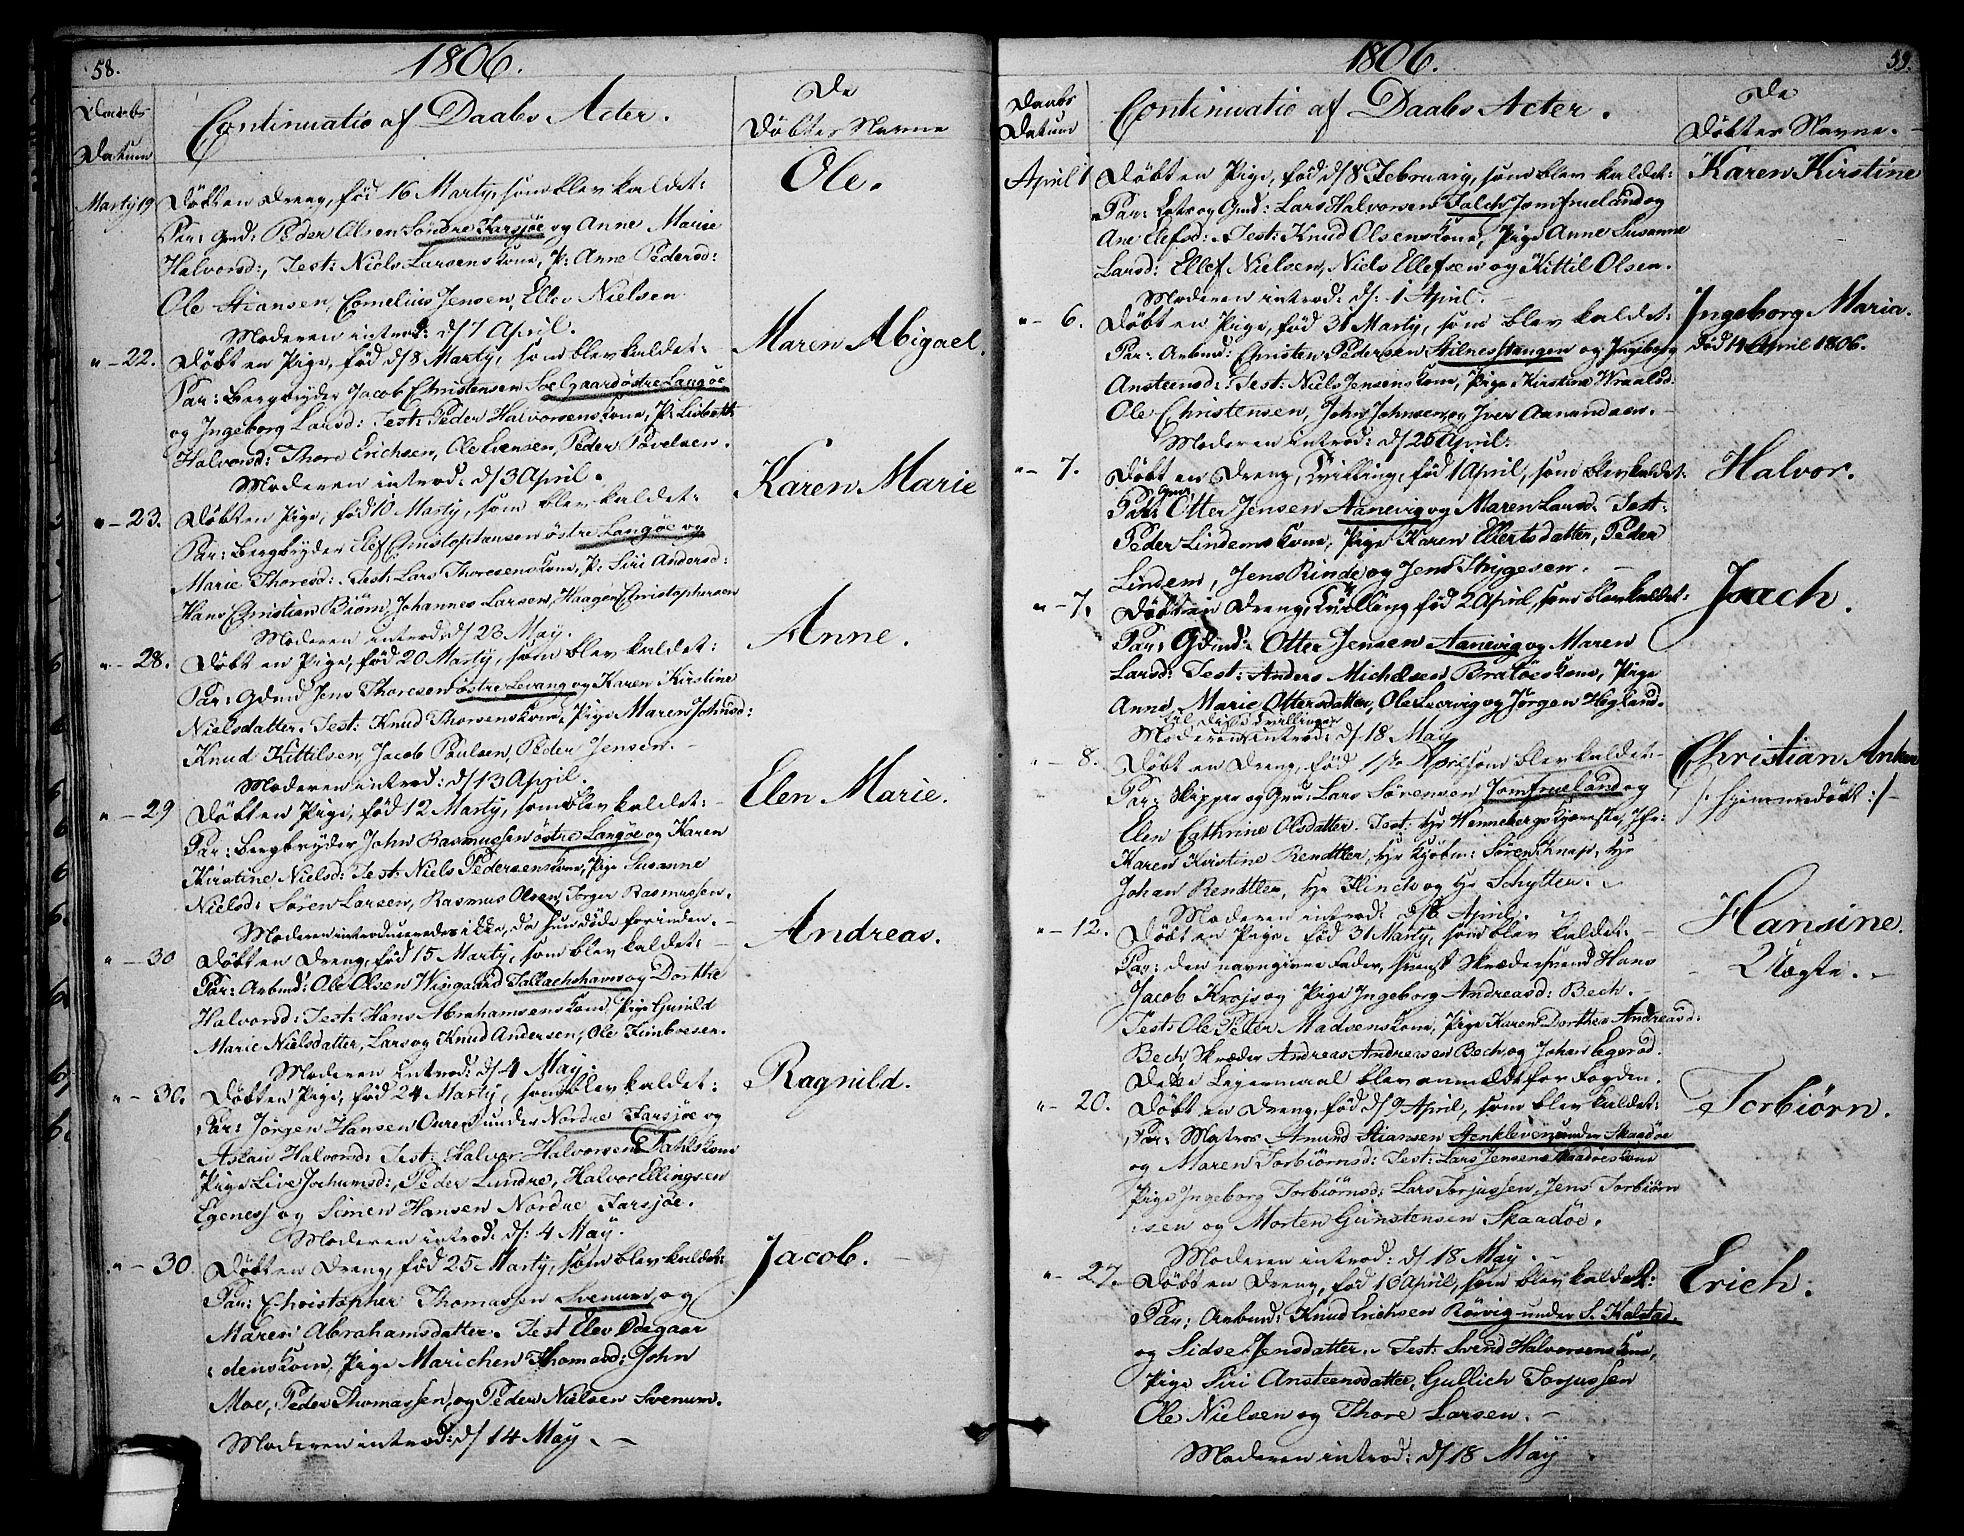 58.
1806.
Daabs
Datum
Continuatio af Daabs Acter.
De
Döbtes Navne
Marty 19
Döbt en Dreng, fød 16 Marty, som blev kaldet:
Ole.
Par: Gmd: Peder Olsen Söndre Farsjøe og Anne Marie
Halvorsd:, Test: Niels Larsens kone, P: Anne Pedersd:
Ole Stiansen, Cornelius Jensen, Ellev Nielsen
Moderen introd: d/ 7 April.
" - 22.
Döbt en Pige, fød d/ 8 Marty, som blev kaldet:
Maren Abigael.
Par: Bergbryder Jacob Christensen Soelgaard østre Langøe
og Ingeborg Larsd: Test: Peder Halvorsens kone, P: Lisbeth
Halvorsd: Thore Erichsen, Ole Evensen, Peder Povelsen.
Moderen introd: d/ 3 April.
" - 23.
Döbt en Pige, fød 10 Marty, som blev kaldet:
Karen Marie
Par: Bergbryder Elef Christophersen østre Langøe og
Marie Thoresd: Test: Lars Thoresens kone, P: Siri Andersd:
Hans Christian Biörn, Johannes Larsen, Haagen Christophersen
Moderen introd: d/ 28 May.
" - 28.
Döbt en Pige, fød 20 Marty, som blev kaldet:
Anne.
Par: Gdmd Jens Thoresen østre Levang og Karen Kirstine
Nielsdatter. Test: Knud Thorsens kone, Pige Maren Johnsd:
Knud Kittilsen, Jacob Poulsen, Peder Jensen.
Moderen introd: d/ 13 April.
" - 29
Döbt en Pige, fød 12 Marty, som blev kaldet:
Elen Marie.
Par: Bergbryder John Rasmusen østre Langøe og Karen
Kirstine Nielsd: Test: Niels Pedersens kone, Pige Susanne
Nielsd: Sören Larsen, Rasmus Olsen, Törger Rasmusen.
Moderen introduceredes ikke, da hun døde forinden.
" - 30
Döbt en Dreng, fød 15 Marty, som blev kaldet:
Andreas.
Par: Arbmd: Ole Olsen Wingaard Tallachshavn og Dorthe
Halvorsd: Test: Hans Abrahamsens kone Pige Gunild
Marie Nielsdatter, Lars og Knud Andersen, Ole
Moderen introd: d/ 4 May:
" - 30.
Döbt en Pige, fød 24 Marty, som blev kaldet:
Ragnild.
Par: Jörgen Hansen under Nordre Farsjøe og
Aslau Halvorsd: Test: Halvor Halvorsen Dahls kone
Pige Live Jochumsd:, Peder Lundre, Halvor Ellingsen
Egenes og Simen Hansen Nordre Farsjøe.
Moderen introd: d/: 4 May.
" - 30.
Döbt en Dreng, fød 25 Marty, som blev kaldet:
Jacob.
Par: Christopher Thomassen Svenum, og
Maren Abrahamsdatter. Test Elev Odegaar
dens kone, Pige Marichen Thomasd: John
Moe, Peder Thomassen, og Peder Nielsen Svenum.
Moderen introd: d/ 14 May.
1806.
59.
Daabs
Datum
Continuatio af Daabs Acter.
De
Döbtes Navne.
April 1
Döbt en Pige, fød d/ 8 February, som blev kaldet:
Karen Kirstine
Par: Lots og Gmd: Lars Halvorsen Falch Jomfrueland og
Ane Elefsd: Test: Knud Olsens kone, Pige Anne Susanne
Larsd: Ellef Nielsen, Niels Ellefsen og Kittil Olsen.
Moderen introd: d/: 1 April.
" - 6.
Döbt en Pige, fød 31 Marty, som blev kaldet:
Ingeborg Maria.
Par: Arbmd: Christen Pedersen Stilnestangen og Ingeborg
död 14 April 1806.
Ansteensd: Test: Niels Jensens kone, Pige Kirstine Wraalsd:
Ole Christensen, John Johnsen, og Iver Aanandsen.
Moderen introd: d/ 26 April.
" - 7.
Döbt en Dreng, Tvilling, fød 1 April, som blev kaldet:
Halvor.
Par: Gmd: Otter Jensen Aanevig og Maren Larsd: Test:
Peder Lindems kone, Pige Karen Ellertsdatter, Peder
Lindem, Jens Rinde og Jens Thygesen.
" - 7.
Döbt en Dreng, Tvilling fød 2 April, som blev kaldet:
Joach.
Par: Gdmd: Otter Jensen Aanevig og Maren
Larsd: Test: Anders Michelsen Bratöes kone, Pige
Anne Marie Ottersdatter, Ole Lervig og Jörgen Hegland.
til disse Tvillinger
Moderen introd: d/ 18 May
" - 8.
Döbt en Dreng, fød 1ste April, som blev kaldet
Christian Anker
Par: Skipper og Gmd: Lars Sörensen Jomfrueland og
/: hjemmedöbt :/
Elen Cathrine Olsdatter. Test: Hr Hennebergs Kjæreste, Jfr:
Karen Kirstine Rendtler, Hr Kjöbm: Sören Knap, Hr
Johan Rendtler, Hr Flinch og Hr Schytter.
Moderen introd: d/ 8 April.
" - 12.
Döbt en Pige, fød 31 Marty, som blev kaldet:
Hansine.
Par: den navngivne Fader, svensk Skrædersvend Hans
Uægte.
Jacob Krojs og Pige Ingeborg Andreasd: Bech.
Test: Ole Peter Madsens kone, Pige Karen Dorthea Andreasd:
Bech, Skræder Andreas Andreasen Bech, og Johan Egerod.
Dette Lejermaal blev anmeldt for Fogden.
" - 20.
Döbt en Dreng, fød d/ 9 April, som blev kaldet:
Torbiörn.
Par: Matros Amund Stiansen Stenkleven under Skaadøe
og Maren Torbiörnsd: Test: Lars Jensens Skaadøes kone
Pige Ingeborg Torbiörnsd: Lars Torjussen, Jens Torbiörn
sen og Morten Gunstensen Skaadøe.
Moderen introd: d/ 18 May
" - 27.
Döbt en Dreng, fød 16 April, som blev kaldet:
Erich.
Par: Arbmd: Knud Erichsen Rörvig under S. Kalstad.
og Sidse Jensdatter. Test: Svend Halvorsens kone,
Pige Siri Ansteensdatter, Gullich Torjussen
Ole Nielsen og Thore Larsen.
Moderen introd: d/ 18 May